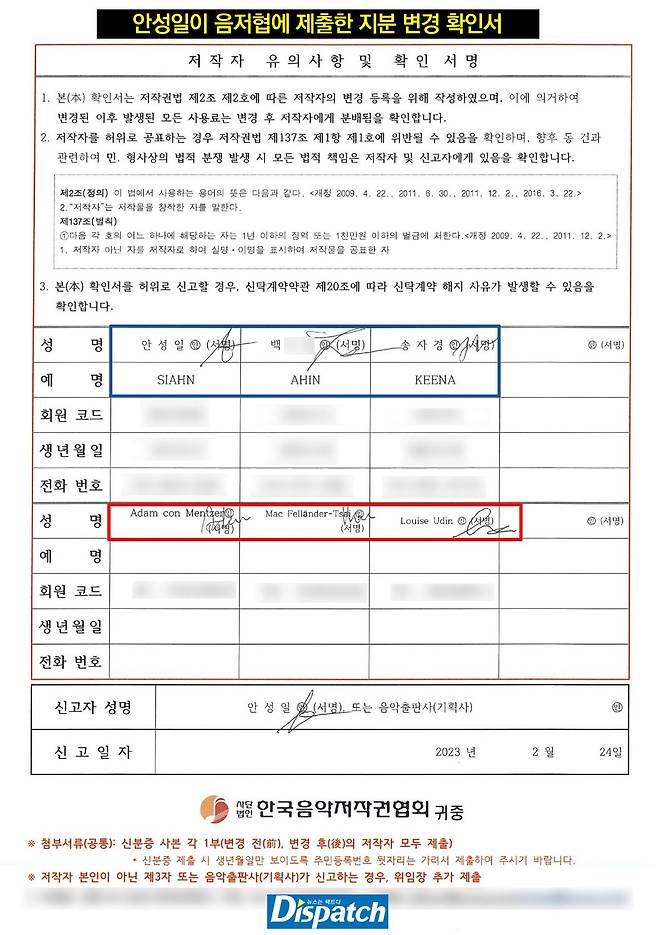 안성일이 음저협에 제출한 지분 변경 확인서
저작자 유의사항 및 확인 서명
1. 본(本) 확인서는 저작권법 제2조 제2호에 따른 저작자의 변경 등록을 위해 작성하였으며, 이에 의거하여
변경된 이후 발생된 모든 사용료는 변경 후 저작자에게 분배됨을 확인합니다.
2. 저작자를 허위로 공표하는 경우 저작권법 제137조 제1항 제1호에 위반될 수 있음을 확인하며, 향후 동 건과
관련하여 민. 형사상의 법적 분쟁 발생 시 모든 법적 책임은 저작자 및 신고자에게 있음을 확인합니다.
제2조(정의) 이 법에서 사용하는 용어의 뜻은 다음과 같다. <개정 2009. 4. 22., 2011. 6. 30., 2011. 12. 2., 2016. 3. 22.>
2."저작자"는 저작물을 창작한 자를 말한다.
제137조(벌칙)
①다음 각 호의 어느 하나에 해당하는 자는 1년 이하의 징역 또는 1천만원 이하의 벌금에 처한다.<개정 2009. 4. 22., 2011. 12. 2.>
1. 저작자 아닌 자를 저작자로 하여 실명·이명을 표시하여 저작물을 공표한 자
3. 본(本) 확인서를 허위로 신고할 경우, 신탁계약약관 제20조에 따라 신탁계약 해지 사유가 발생할 수 있음을
확인합니다.
성 명 안성일 ㊞ (서명) 백 ㊞ (서명) 송자경 ㊞ (서명) ㊞ (서명)
예 명 SIAHN AHIN KEENA
회원 코드
생년월일
전화 번호
성 명 Adam con Mentzer ㊞ (서명) Mac Fellander-Tsai ㊞ (서명) Louise Udin ㊞ (서명) ㊞ (서명)
예 명
회원 코드
생년월일
전화 번호
신고자 성명 안성일 ㊞ (서명), 또는 음악출판사(기획사) ㊞
신고일자 2023 년 2 월 24일
사단법인 한국음악저작권협회 귀중
※ 첨부서류(공통): 신분증 사본 각 1부(변경 전(前), 변경 후(後)의 저작자 모두 제출)
* 신분증 제출 시 생년월일만 보이도록 주민등록번호 뒷자리는 가려서 제출하여 주시기 바랍니다.
※ 저작자 본인이 아닌 제3자 또는 음악출판사(기획사)가 신고하는 경우, 위임장 추가 제출
뉴스는 팩트다
Dispatch